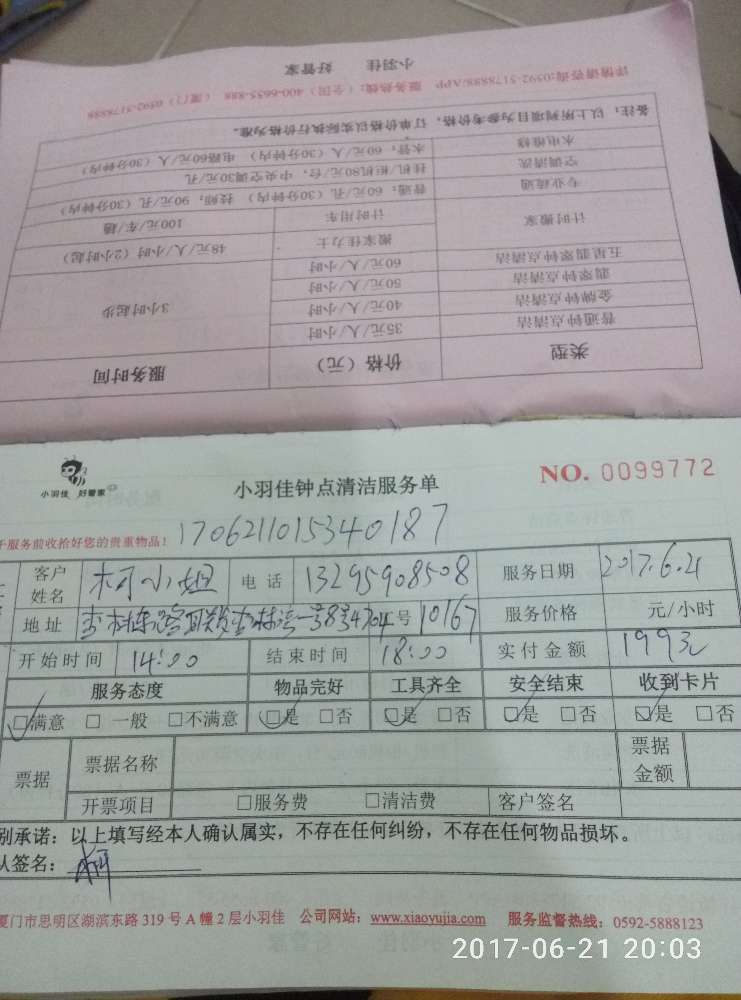 小羽佳 好管家
详情请咨询:0592-5178888/APP 服务热线:(全国)400-6655-888 (厦门)0592-5178888
备注:以上所列项目为参考价格,订单价格以实际执行价格为准。
水电维修 水管:60元/人(30分钟内) 电路60元/人(30分钟内)
空调清洗 挂机/柜机80元/台,中央空调30元/孔
专业疏通 普通:60元/孔(30分钟内) 技师:90元/孔(30分钟内)
计时搬家 计时用车 100元/车/趟
搬家佳力士 48元/人/小时(2小时起)
五星翡翠钟点清洁 60元/人/小时
翡翠钟点清洁 50元/人/小时
金牌钟点清洁 40元/人/小时 3小时起步
普通钟点清洁 35元/人/小时
类型 价格(元) 服务时间
小羽佳 好管家
小羽佳钟点清洁服务单
NO. 0099772
于服务前收拾好您的贵重物品!
170621101534 0187
客户姓名 柯小姐 电话 13295908508 服务日期 2017.6.21
地址 杏林 号 10167 服务价格 元/小时
开始时间 14:00 结束时间 18:00 实付金额 199元
服务态度 物品完好 工具齐全 安全结束 收到卡片
☑满意 □一般 □不满意 ☑是 □否 ☑是 □否 ☑是 □否 ☑是 □否
票据 票据名称 票据金额
开票项目 □服务费 □清洁费 客户签名
别承诺:以上填写经本人确认属实,不存在任何纠纷,不存在任何物品损坏。
人签名: 柯
厦门市思明区湖滨东路319号A幢2层小羽佳 公司网站:www.xiaoyujia.com 服务监督热线:0592-5888123
2017-06-21 20:03